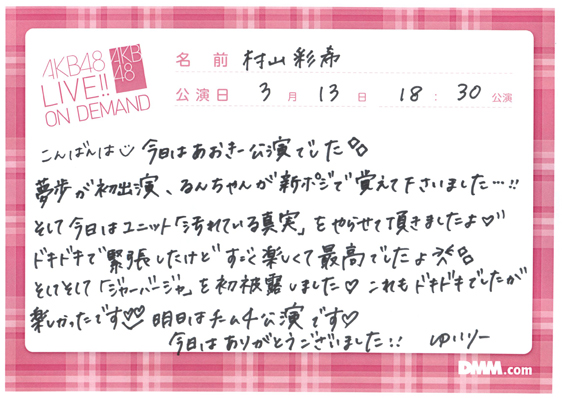 AKB48
LIVE!!
ON DEMAND
AKB
48
名前 村山彩希
公演日 3月13日 18:30公演
こんばんは 今日はあおきー公演でした
夢歩が初出演、るんちゃんが新ポジで覚えて下さいました…!!
そして今日はユニット「汚れている真実」をやらせて頂きましたよ♡
ドキドキで緊張したけどすごく楽しくて最高でしたよ
そしてそして「ジャーバージャ」を初披露しました♡ これもドキドキでしたが
楽しかったです♡♡ 明日はチーム4公演です♡
今日はありがとうございました!! ゆいりー
DMM.com